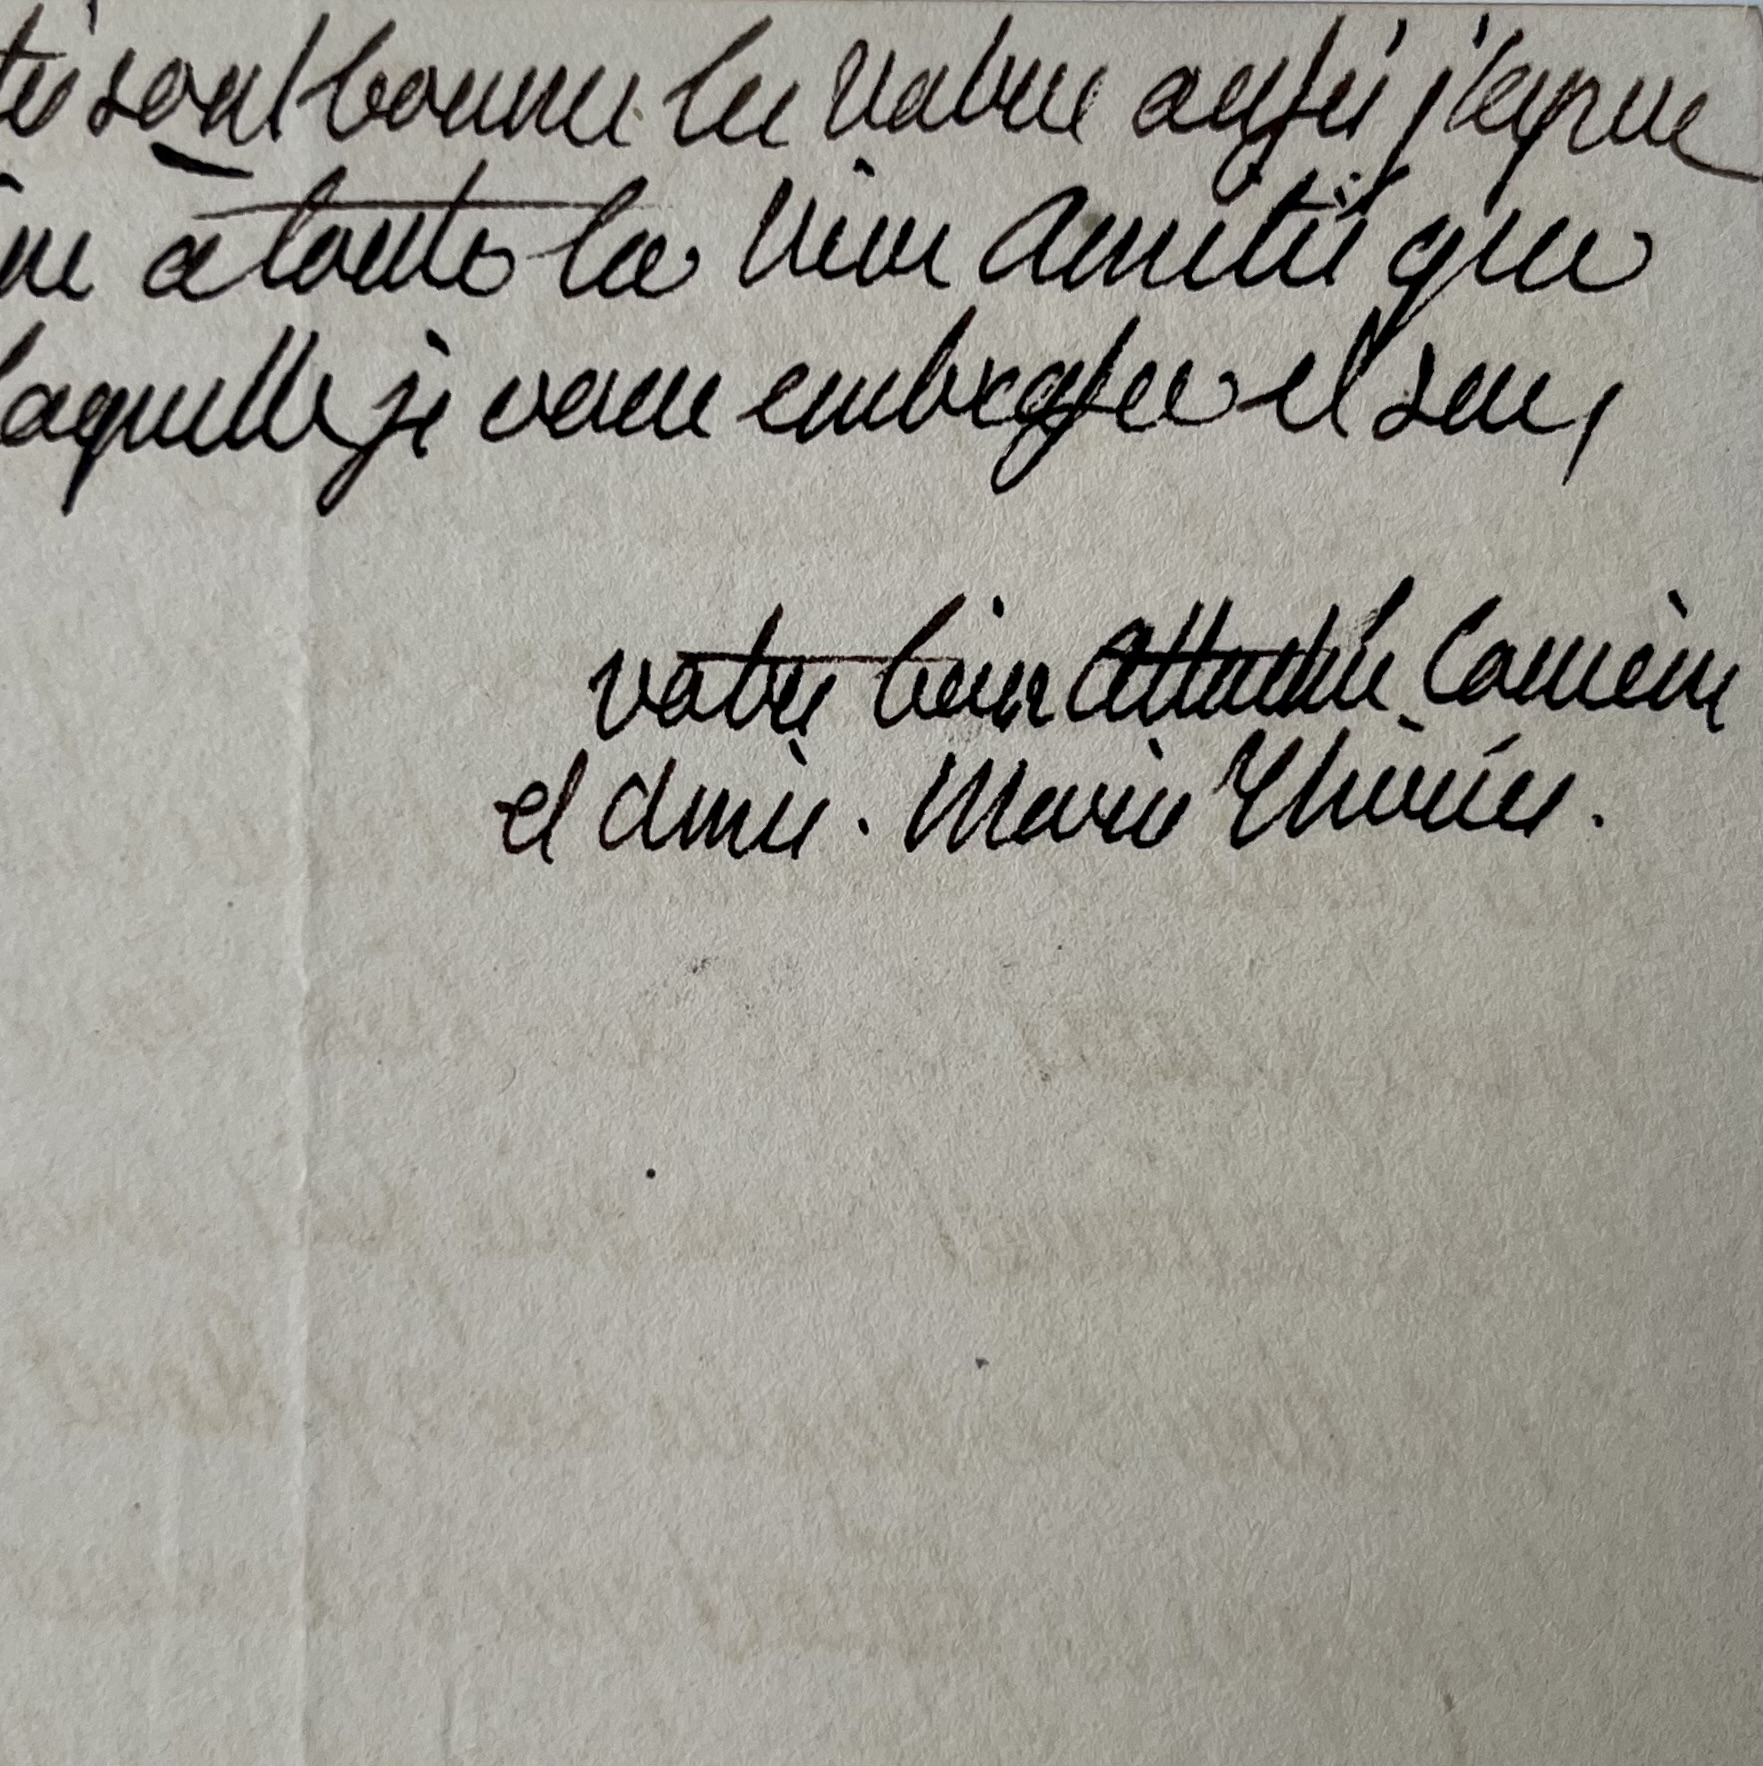 tés sont bonnes les votres aussi j'espere
à toute la vive amitié que
laquelle je vous embrasse et suis,
votre bien attachée Comère
et amie. Marie Thérèse.